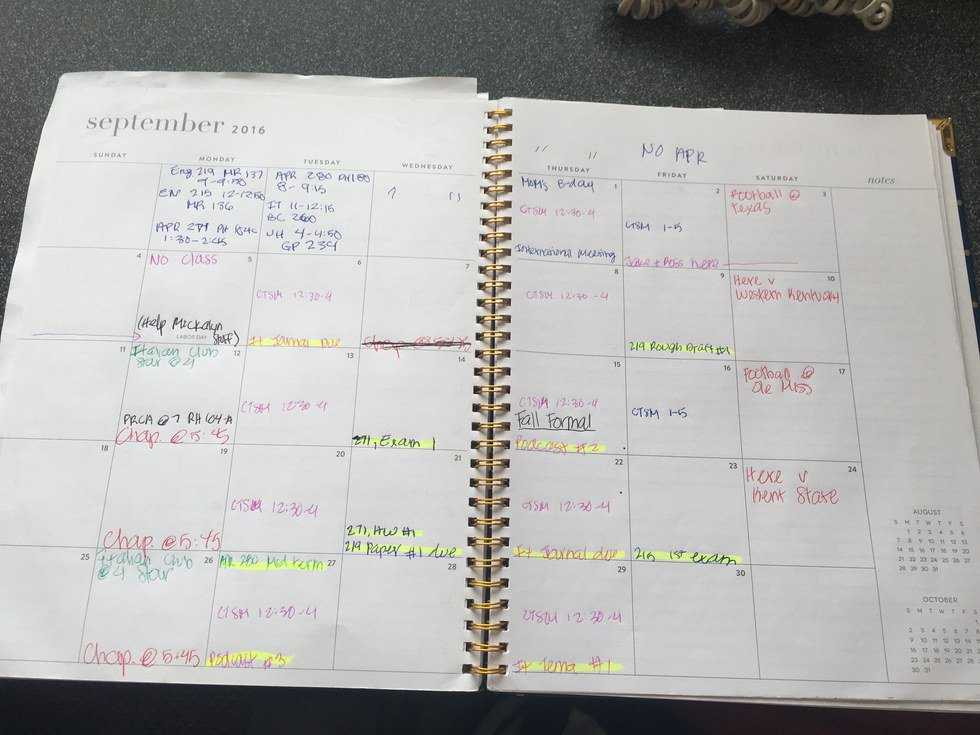 september 2016
SUNDAY
MONDAY
TUESDAY
WEDNESDAY
Eng 219 MR 137
9-9:50
EN 215 12-12:50
MR 136
APR 271 PH
1:30-2:45
APR 280 PH
8-9:15
IT 11-12:15
BC 260
UH 4-4:50
GP 234
11
4
No Class
(Help Mickalyn
Stuff)
LABOR DAY
5
6
CTSM 12:30-4
It Journal Due
7
Chap @ 5:45
11
Italian Club
Star @ 4
12
PRCA @ 7 RH 104A
Chap. @ 5:45
13
CTSM 12:30-4
14
271, Exam 1
18
19
Chap. @ 5:45
20
CTSM 12:30-4
21
271, HW #1
219 Paper #1 due
25
Italian Club
@ 4 Star
26
Chap. @ 5:45
APR 280 Midterm
27
CTSM 12:30-4
Podcast #3
28
" " NO APR
THURSDAY
FRIDAY
SATURDAY
notes
Mom's B-day
1
CTSM 12:30-4
International Meeting
2
CTSM 1-5
Jake + Ross here
3
Football @
Texas
8
CTSM 12:30-4
9
219 Rough Draft #1
10
Here v
Western Kentucky
15
CTSM 12:30-4
Fall Formal
Podcast #2
16
CTSM 1-5
17
Football @
Ole Miss
22
CTSM 12:30-4
It Journal due
23
215 1st exam
24
Here v
Kent State
29
CTSM 12:30-4
It Tema #1
30
AUGUST
S M T W T F S
1 2 3 4 5 6
7 8 9 10 11 12 13
14 15 16 17 18 19 20
21 22 23 24 25 26 27
28 29 30 31
OCTOBER
S M T W T F S
1
2 3 4 5 6 7 8
9 10 11 12 13 14
16 17 18 19 20 21
23 24 25 26 27 28
30 31